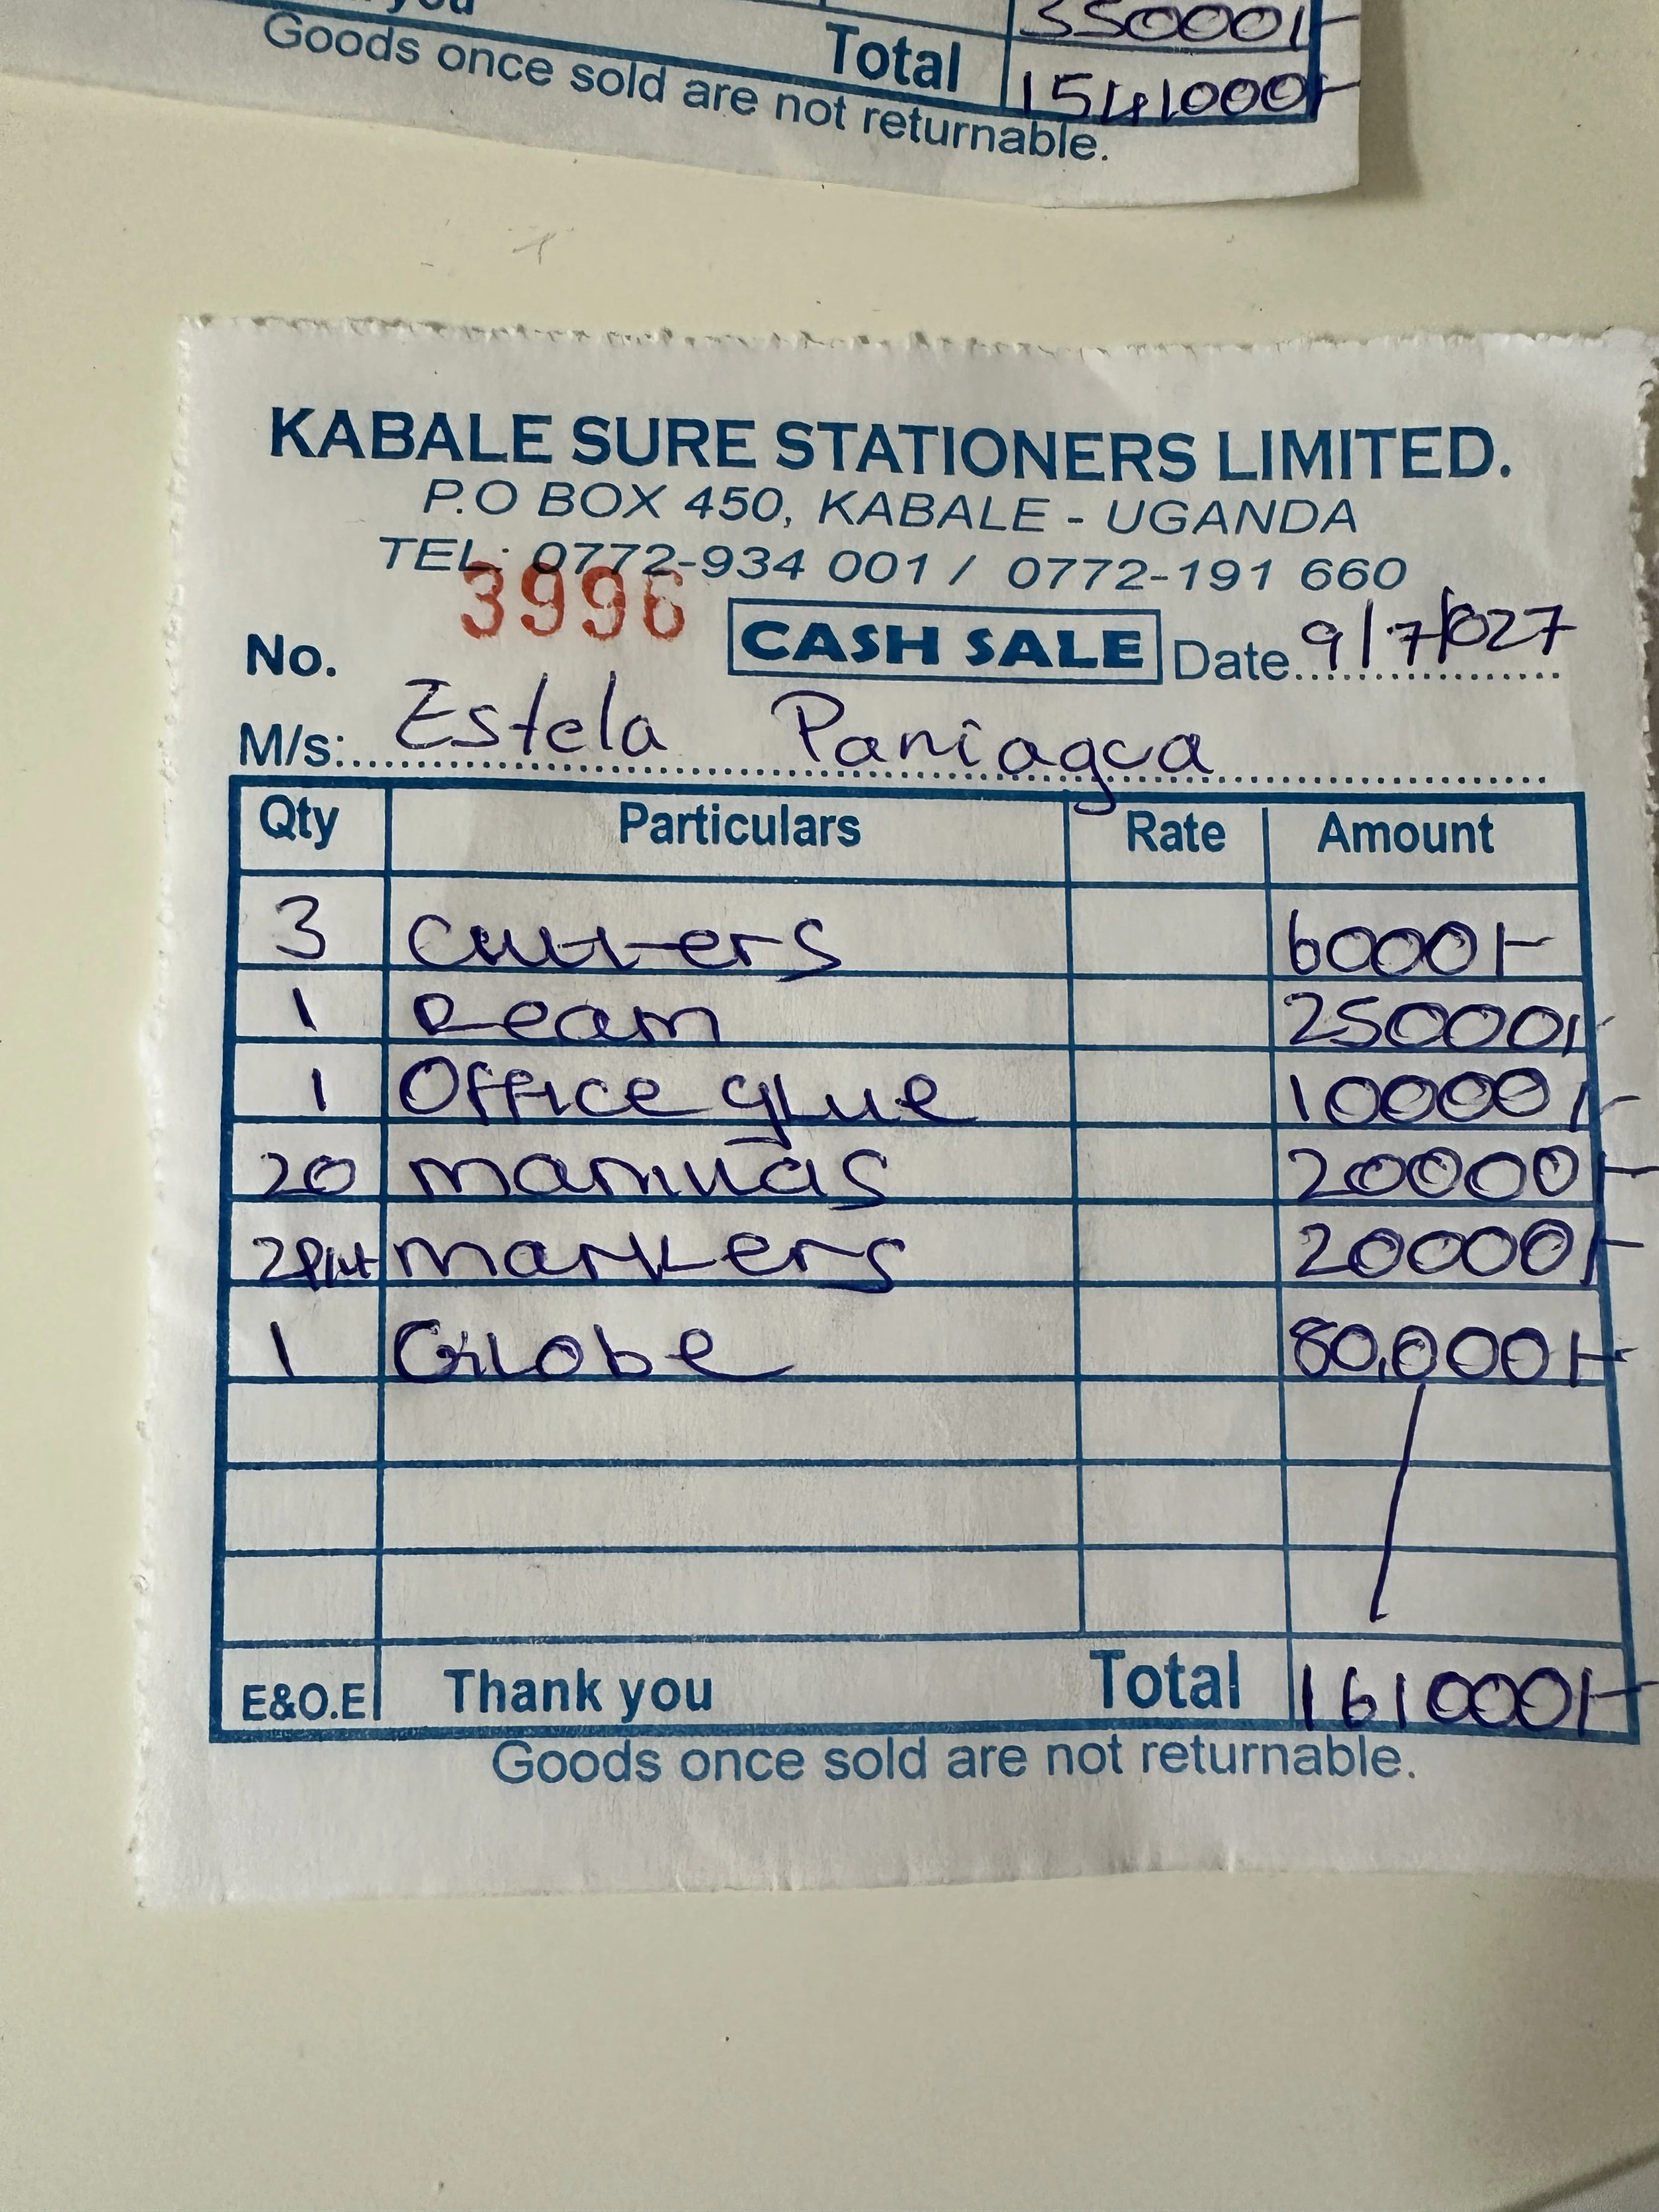 you 35000/-
Total 1541000/-
Goods once sold are not returnable.
KABALE SURE STATIONERS LIMITED.
P.O BOX 450, KABALE - UGANDA
TEL: 0772-934 001 / 0772-191 660
No. 3996 CASH SALE Date 9/7/027
M/s: Estela Paniagua
Qty Particulars Rate Amount
3 Cutters 6000/-
1 Ream 25000/-
1 Office glue 10000/-
20 manilas 20000/-
2pkt markers 20000/-
1 Globe 80,000/-
E&O.E Thank you Total 161000/-
Goods once sold are not returnable.